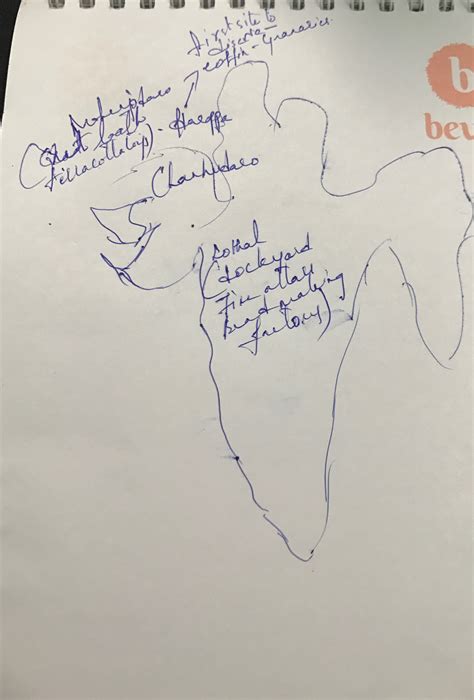 First site to
discover
coffin - Granaries
Mohenjodaro
(Great bath
terracotta toys) - Harappa
Chanhudaro
Lothal
(dockyard
Fire altars
Bead making
factory)
b
bew